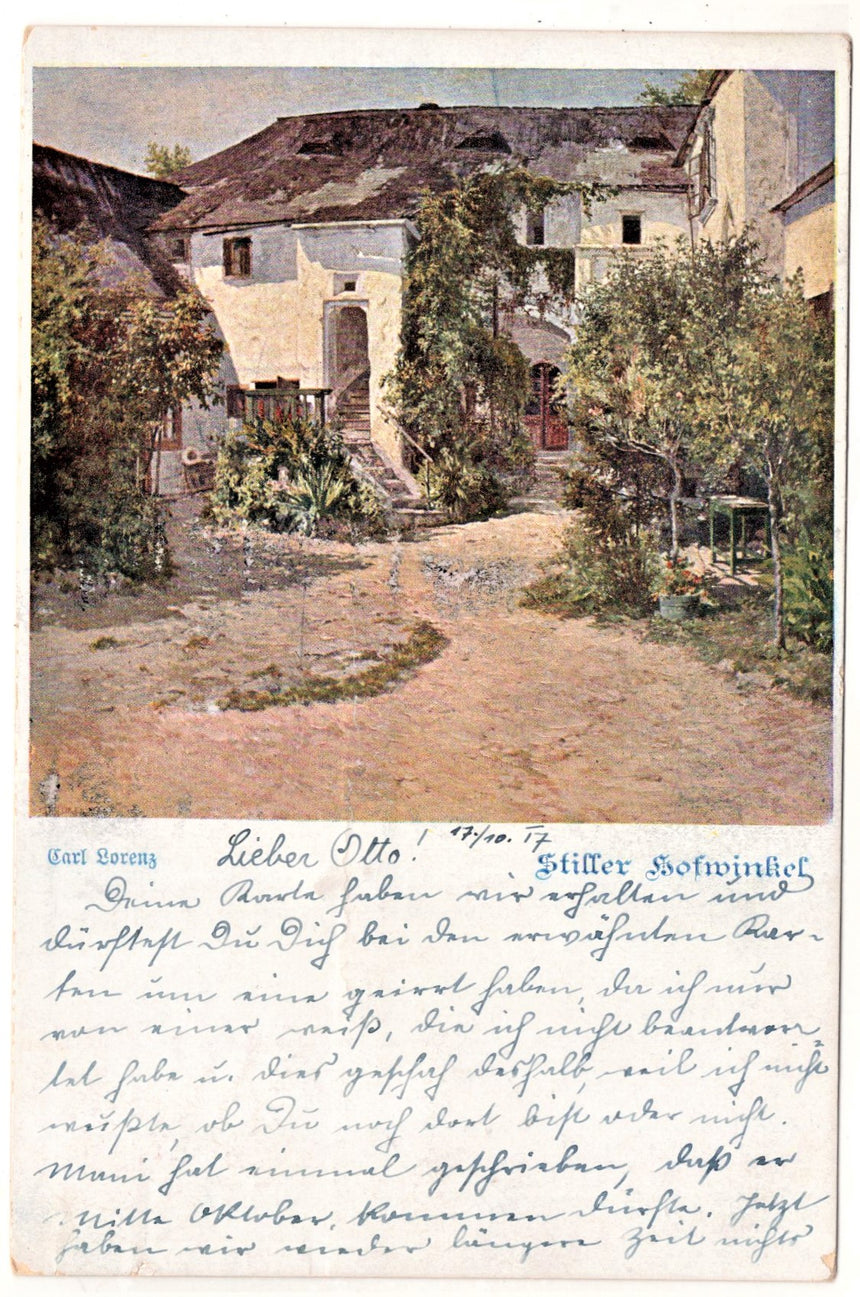 Carl Lorenz
Lieber Otto! 17./10. 17
Stiller Hofwinkel
Deine Karte haben wir erhalten und
dürftest Du Dich bei den erwähnten Kar-
ten um eine geirrt haben, da ich nur
von einer weiß, die ich nicht beantwor-
tet habe u. dies geschah deshalb, weil ich nicht
wußte, ob Du noch dort bist oder nicht.
Mani hat einmal geschrieben, daß er
Mitte Oktober kommen dürfte. Jetzt
haben wir wieder längere Zeit nichts